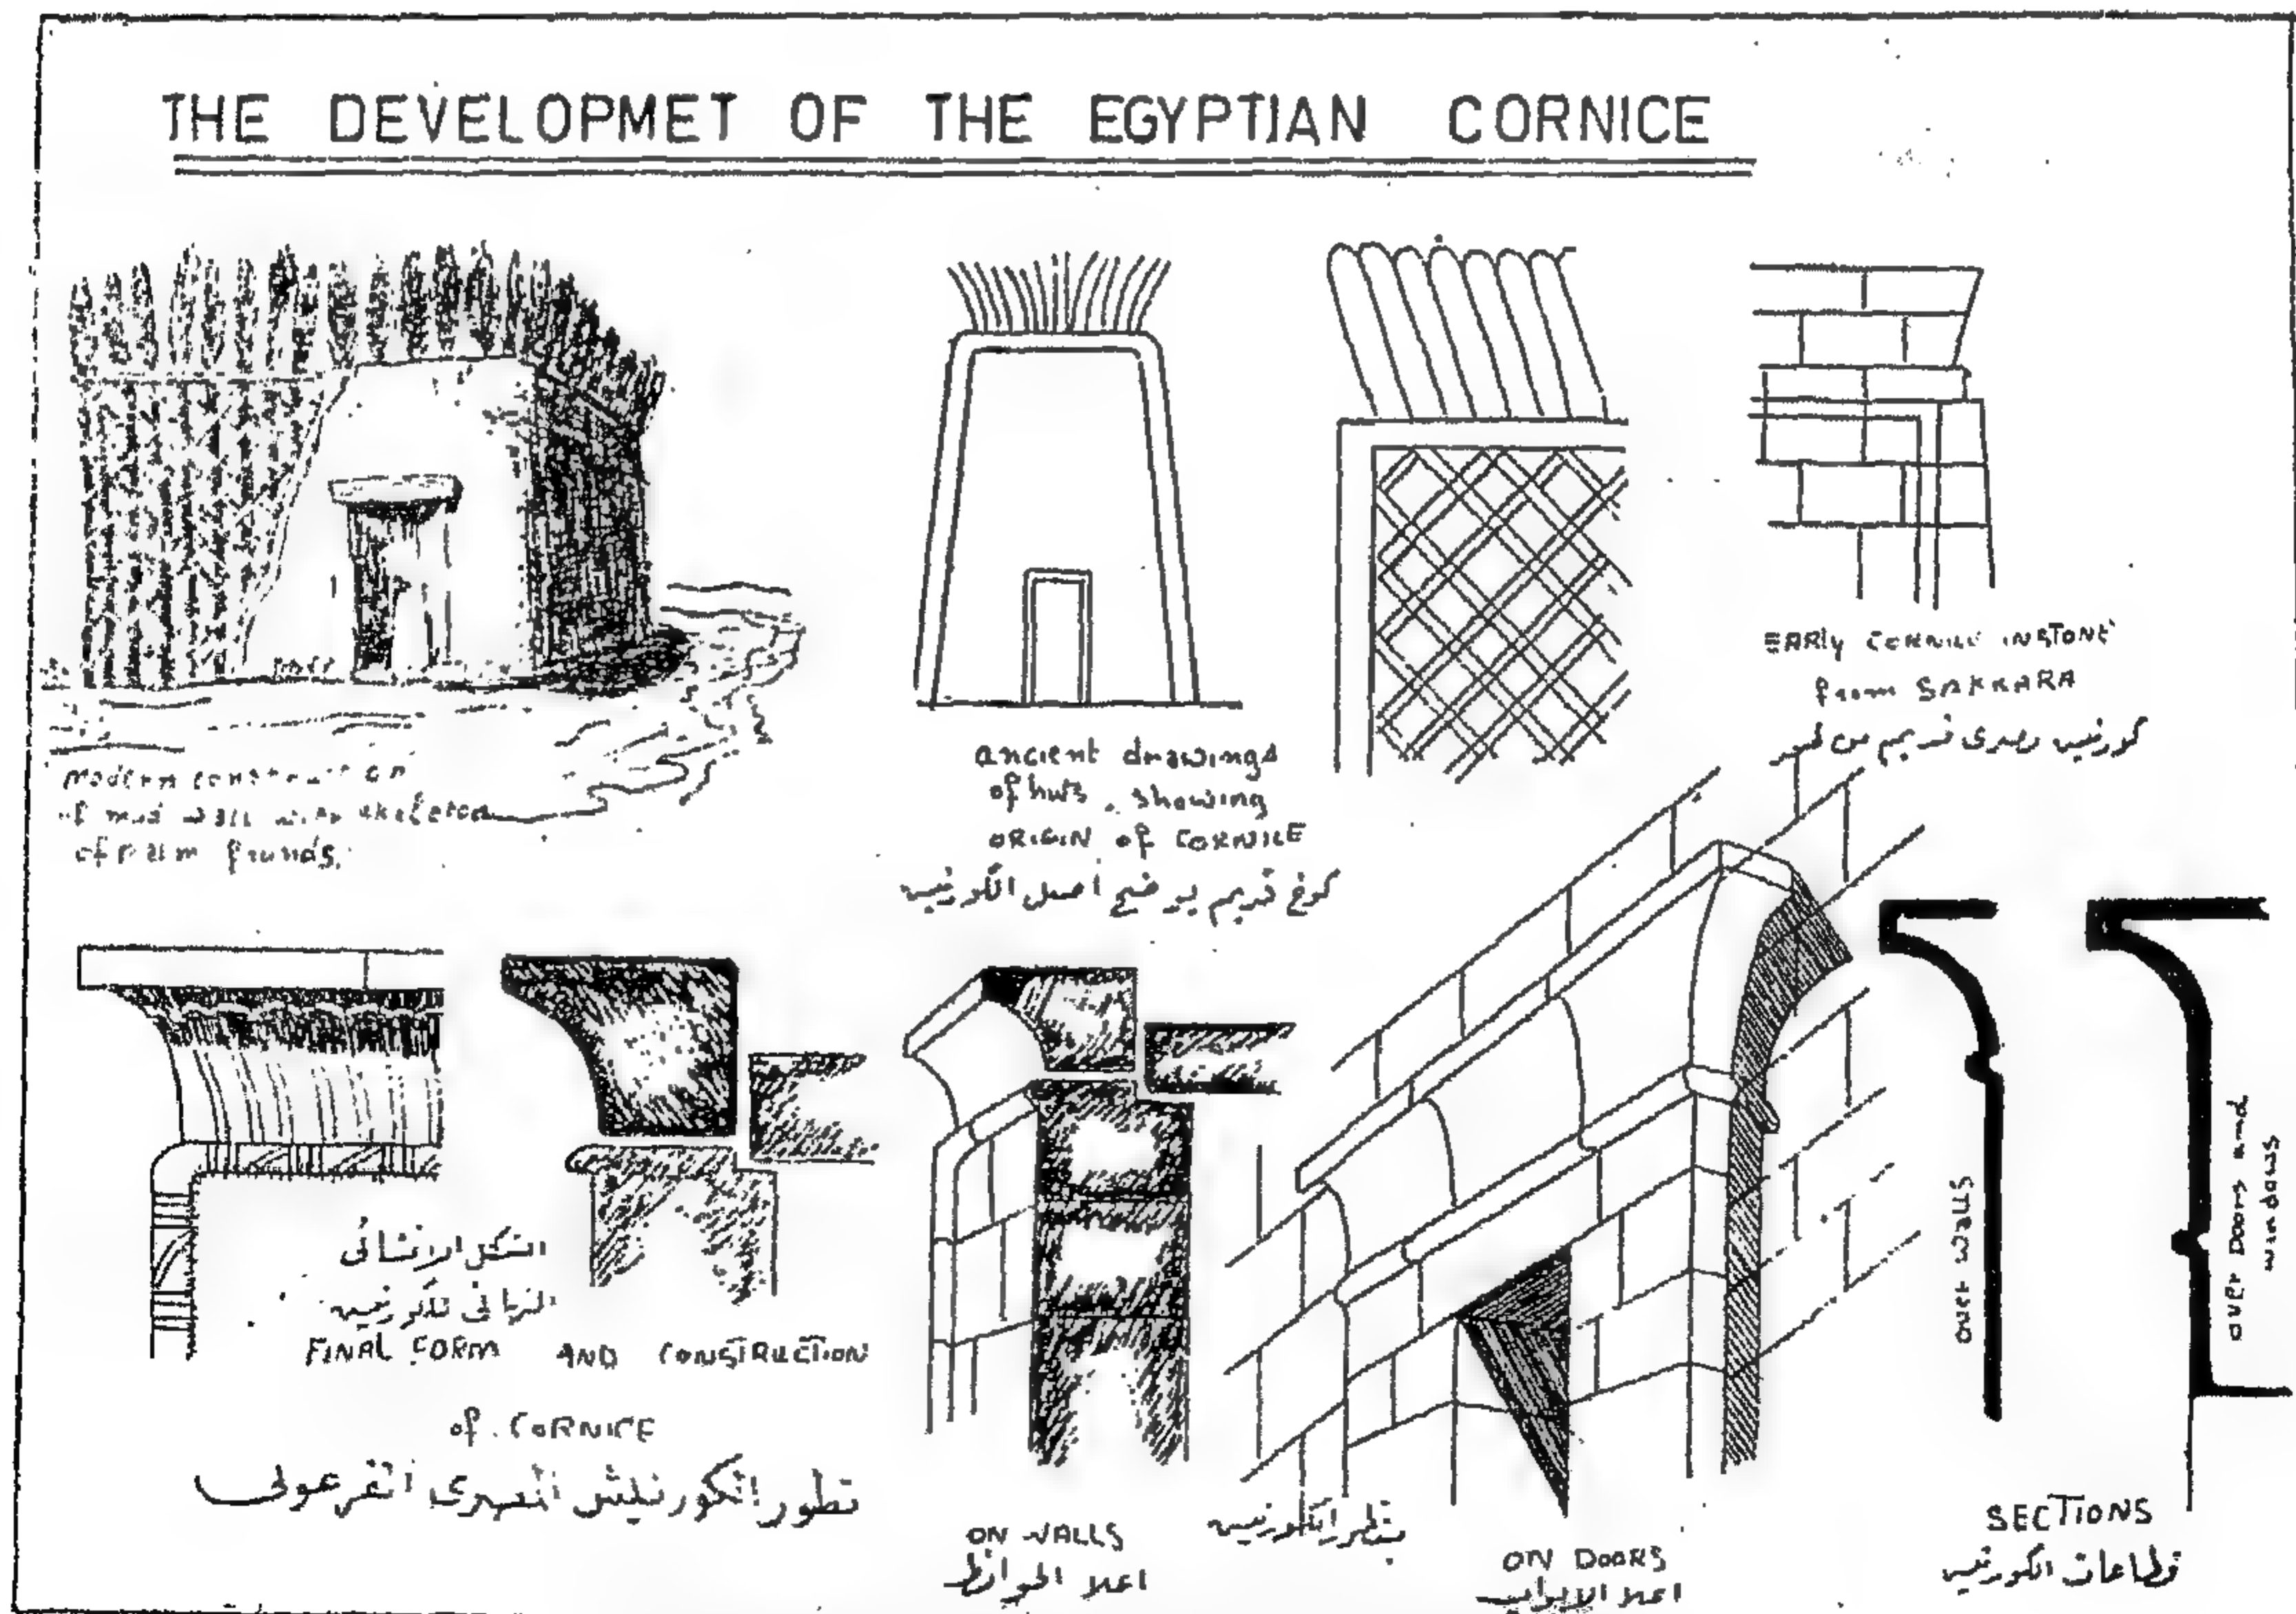 THE DEVELOPMET OF THE EGYPTIAN CORNICE
modern construction
of mud wall with skeleton
of palm frunds.
ancient drawings
of huts . showing
ORIGIN of CORNICE
كوخ قديم يوضح أصل الكورنيس
EARLY CORNICE INSTONE
from SAKKARA
كورنيس مصرى قديم من
الشكل الانشائى
النهائى للكورنيس
FINAL FORM AND CONSTRUCTION
of . CORNICE
تطور الكورنيش المصرى الفرعونى
ON WALLS
اعلا الحوائط
منظور الكورنيس
ON DOORS
اعلا الابواب
over walls
over Doors and
windows
SECTIONS
قطاعات الكورنيس